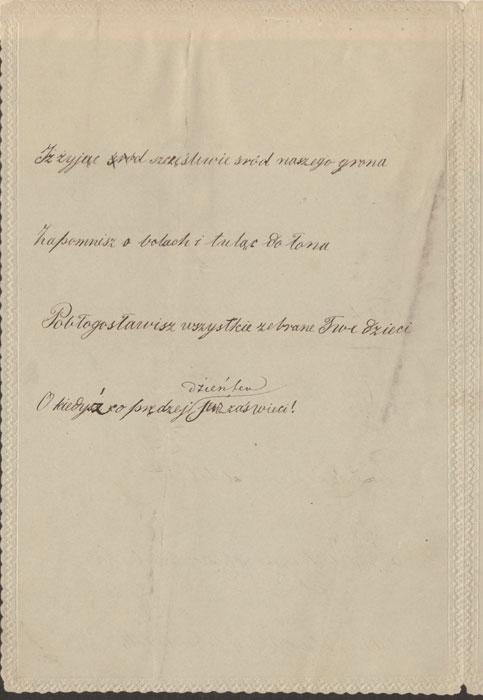 Iż żyjąc szczęśliwie sród naszego grona
Zapomnisz o bolach i tuląc do łona
Pobłogosławisz wszystkie zebrane Twe dzieci
dzień ten
O kiedyż co prędzej już zaświeci!